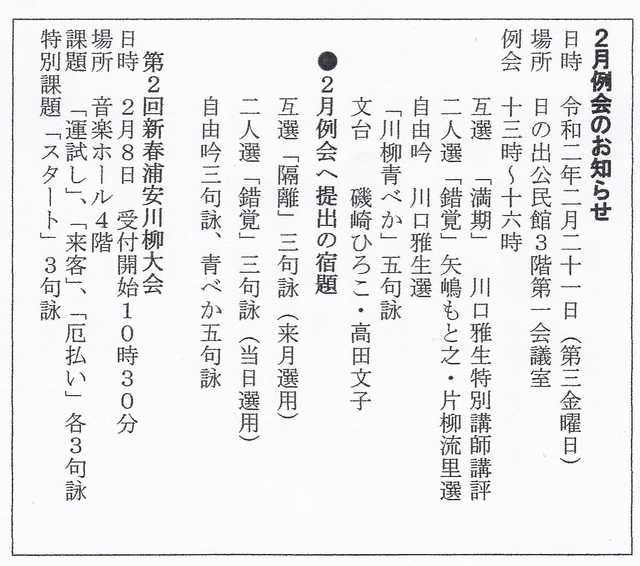 2月例会のお知らせ
日時 令和二年二月二十一日（第三金曜日）
場所 日の出公民館3階第一会議室
例会 十三時～十六時
互選 「満期」 川口雅生特別講師講評
二人選「錯覚」矢嶋もと之・片柳流里選
自由吟 川口雅生選
「川柳青べか」五句詠
文台 磯崎ひろこ・高田文子
●2月例会へ提出の宿題
互選「隔離」三句詠（来月選用）
二人選「錯覚」三句詠（当日選用）
自由吟三句詠、青べか五句詠
第2回新春浦安川柳大会
日時 2月8日 受付開始10時30分
場所 音楽ホール4階
課題 「運試し」、「来客」、「厄払い」各3句詠
特別課題「スタート」3句詠